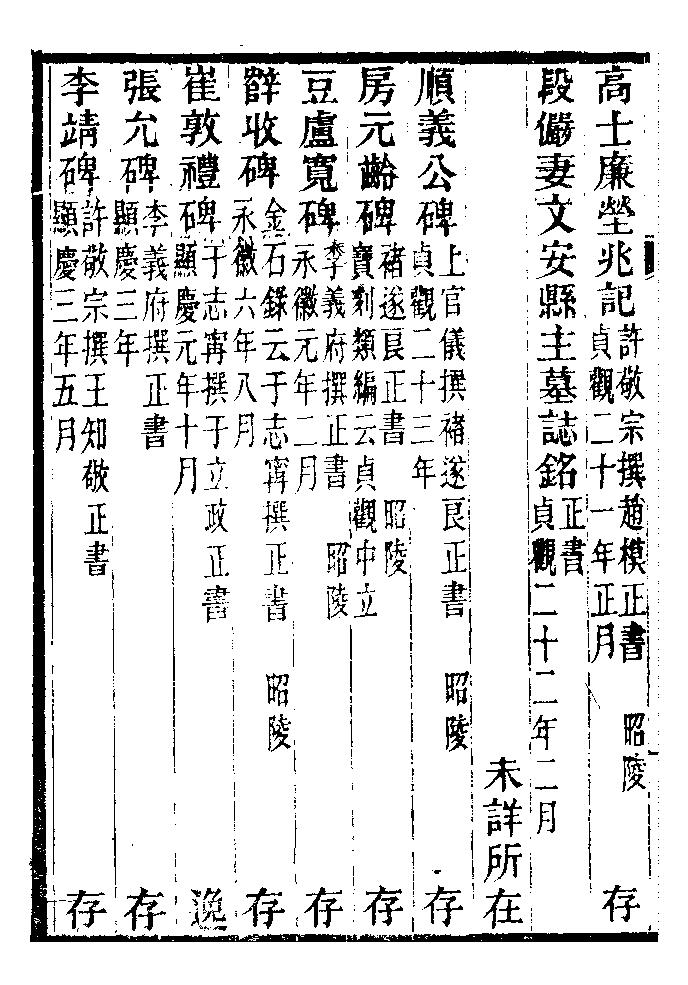 高士廉塋兆記許敬宗撰趙模正書 昭陵
貞觀二十一年正月 存
段儼妻文安縣主墓誌銘正書
貞觀二十二年二月
未詳所在
順義公碑上官儀撰褚遂良正書 昭陵
貞觀二十三年 存
房元齡碑褚遂良正書 昭陵
寶刻類編云貞觀中立 存
豆盧寬碑李義府撰正書 昭陵
永徽元年二月 存
薛收碑金石錄云于志寧撰正書 昭陵
永徽六年八月 存
崔敦禮碑于志寧撰于立政正書
顯慶元年十月 逸
張允碑李義府撰正書
顯慶三年 存
李靖碑許敬宗撰王知敬正書
顯慶三年五月 存